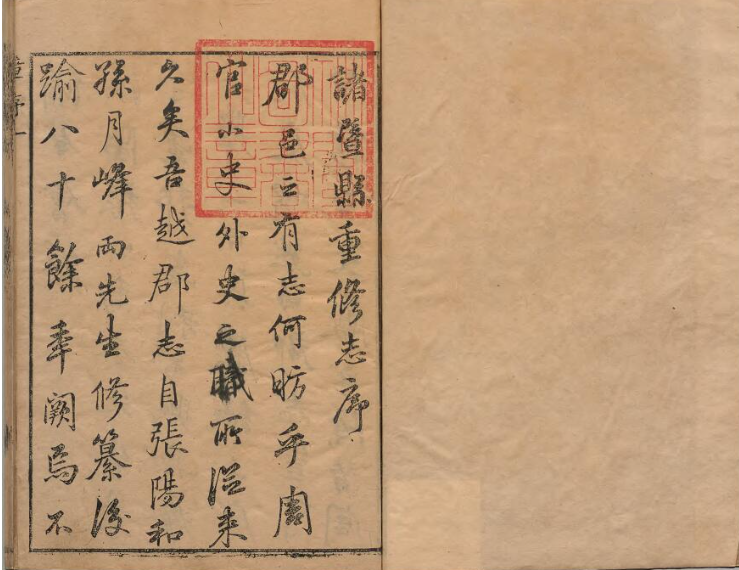 諸暨縣重修志序
郡邑之有志何昉乎周
官小史外史之職所從来
久矣吾越郡志自張陽和
孫月峰兩先生修纂後
踰八十餘年闕焉不